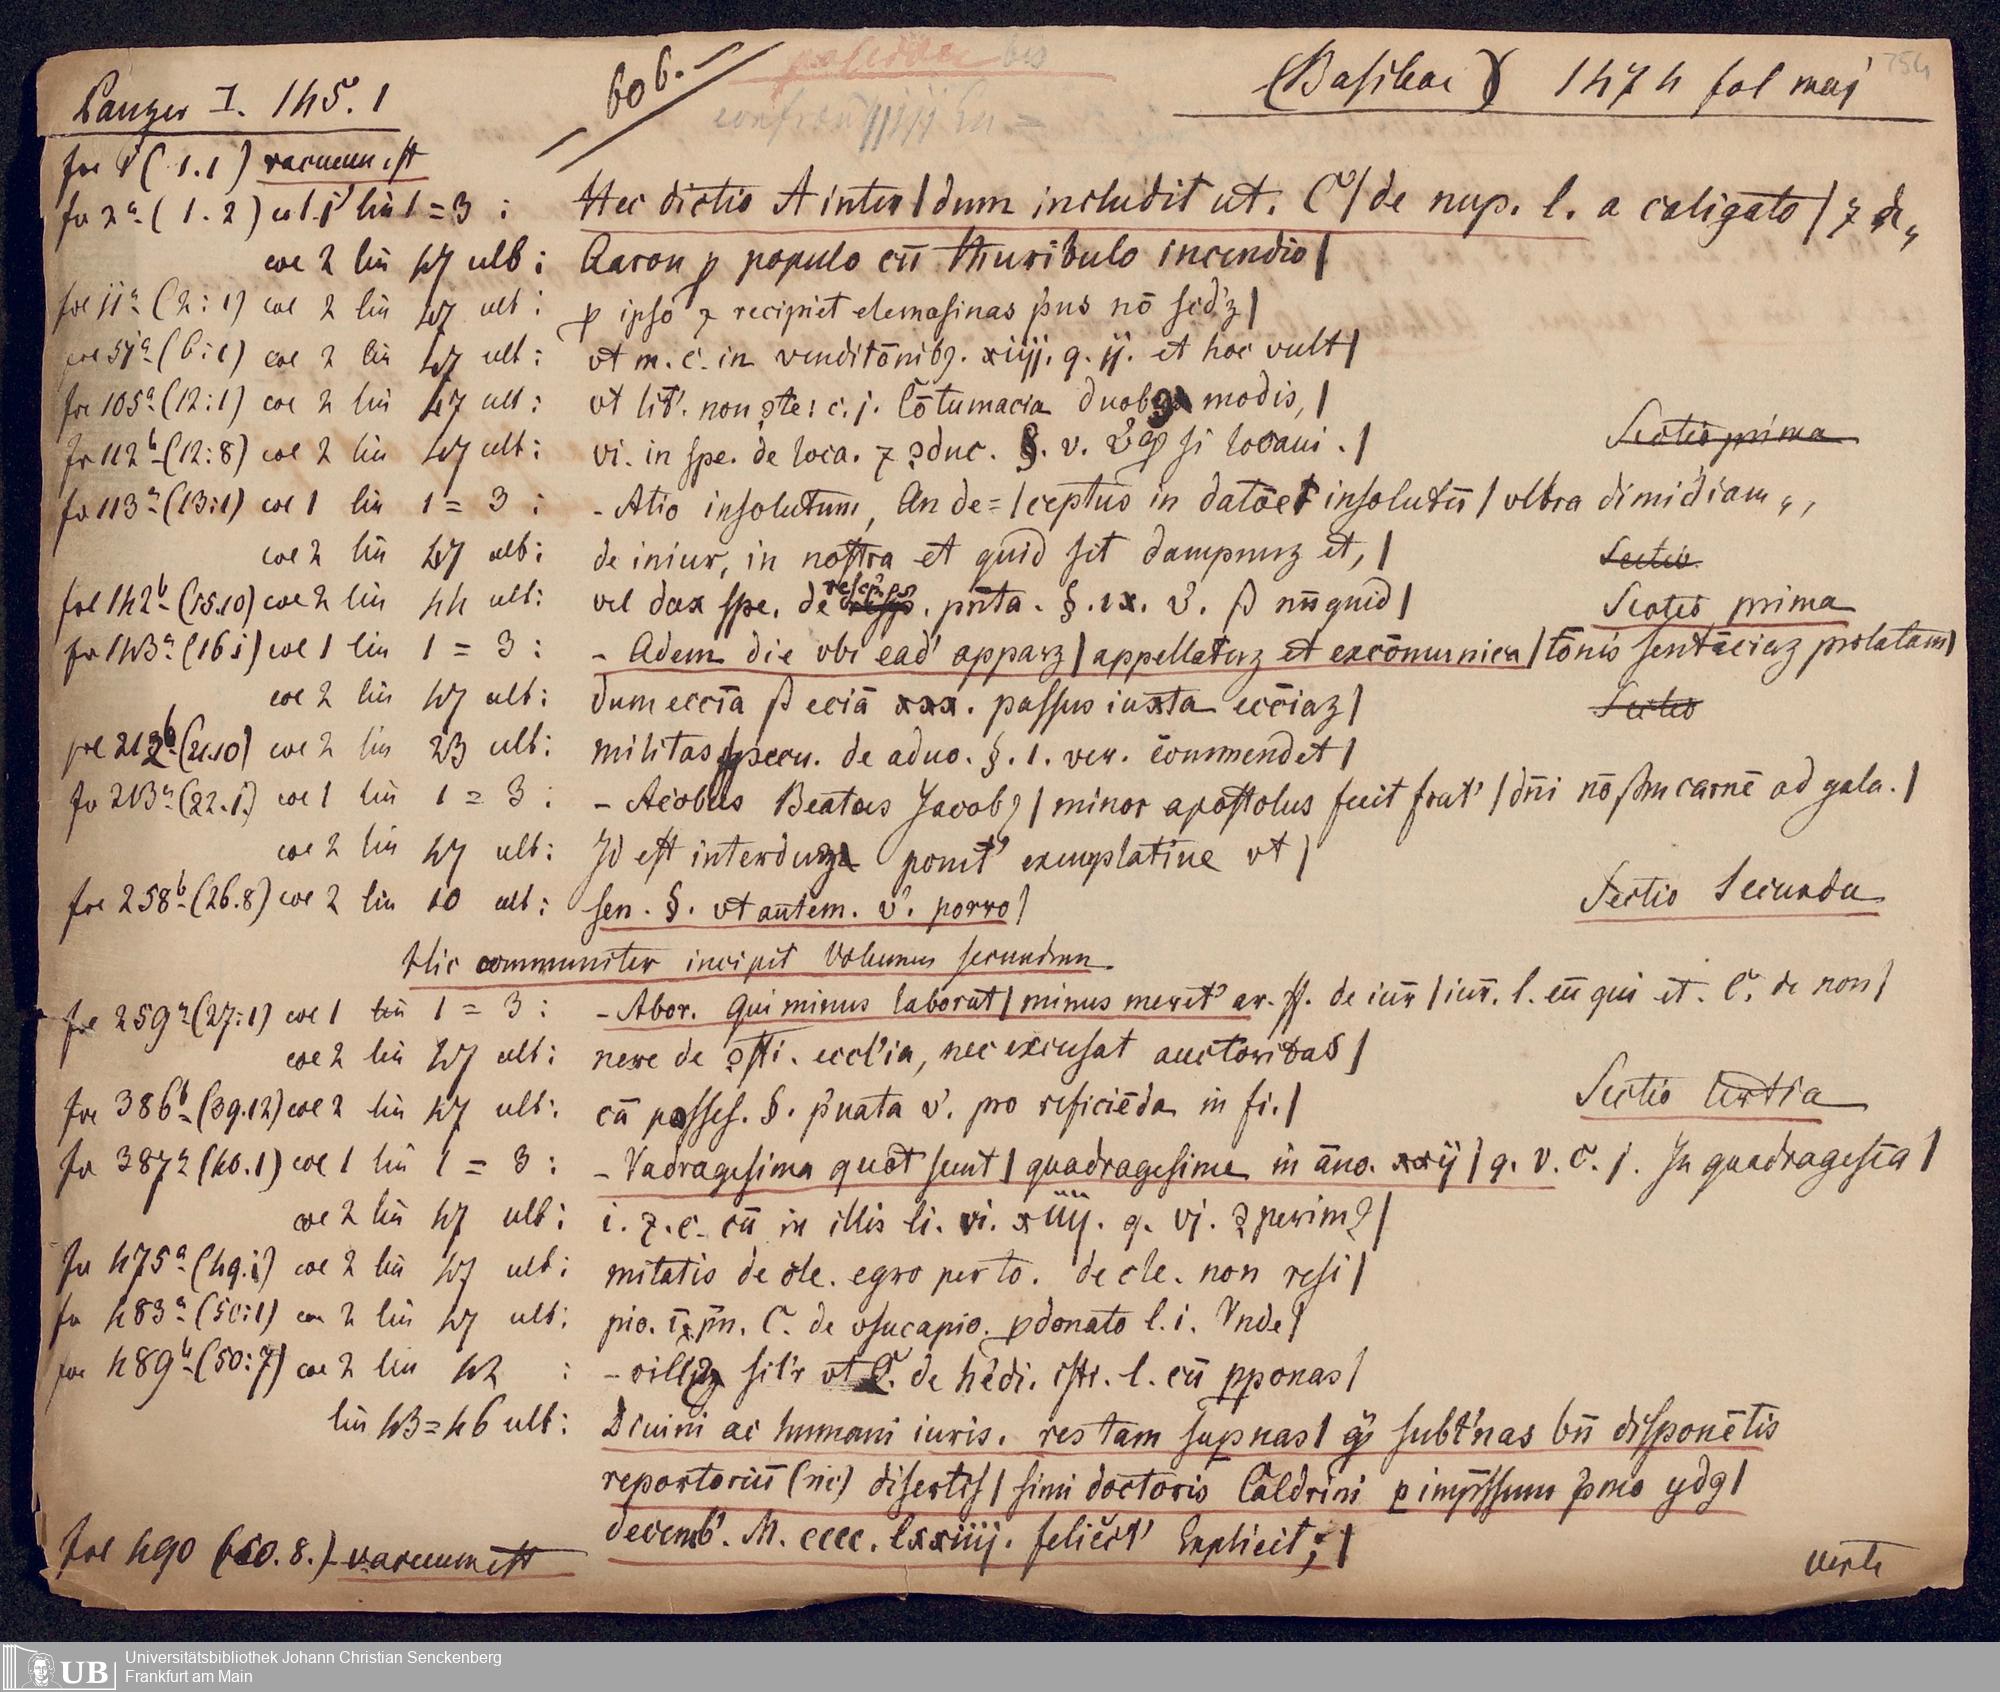 Panzer I. 145. 1
606.
(Basileae) 1474 fol maj
754
fol 1 (1.1) vacuum est
fol 2a (1.2) col. 1 lin 1 = 3 : Hec dictio A inter/dum includit ut. C/de nup. l. a caligato / 7 de,,
col 2 lin 47 ult: Aaron p populo cū thuribulo incendio/
fol 11a (2:1) col 2 lin 47 ult: p ipso 7 recipiet elemosinas pus nō sed'z/
fol 51a (6:1) col 2 lin 47 ult: vt m. c. in venditōnibȝ. xiiij. q. ij. et hoc vult/
fol 105a (12:1) col 2 lin 47 ult: vt lit'. non ꝯte: c. j. Cōtumacia duobȝ modis,/
fol 112b (12:8) col 2 lin 47 ult: vi. in spe. de loca. 7 ꝯduc. §. v. si locaui./
Sectio prima
fol 113a (13:1) col 1 lin 1 = 3 : - Atio insolutum, An de=/ceptus in datōe insolutū/vltra dimidiam,,
col 2 lin 47 ult: de iniur, in nostra et quid sit dampnuz et,/
Sectio
fol 142b (15.10) col 2 lin 44 ult: vel dax spe. de rescīps. pnta. §. ix. v. nūquid/
Sectio prima
fol 143a (16.1) col 1 lin 1 = 3 : - Adem die vbi ead' apparz/appellatuz et excōmunica/tōnis sentēciaz prolatam/
col 2 lin 47 ult: dum eccīa eciā xxx. passus iuxta eccīaz/
Sectio
fol 212b (21.10) col 2 lin 23 ult: militas specu. de aduo. §. 1. ver. commendet/
fol 213a (22.1) col 1 lin 1 = 3 : - Acobus Beatus Jacobȝ/minor apostolus fuit frat'/dn̄i nō sm carnē ad gala./
col 2 lin 47 ult: Id est interduz ponit' exemplatiue vt/
fol 258b (26.8) col 2 lin 10 ult: sen. §. vt autem. v'. porro/
Sectio Secunda
Hic communiter incipit Volumen secundum
fol 259a (27:1) col 1 lin 1 = 3 : - Abor. Qui minus laborat/minus meret' ar. ff. de iur/iur. l. cū qui et. C. de non/
col 2 lin 47 ult: nere de ꝯsti. eccl'ia, nec excusat auctoritas/
fol 386b (39.12) col 2 lin 47 ult: cā posses. §. p'uata v'. pro reficiēda in fi./
Sectio tertia
fol 387a (40.1) col 1 lin 1 = 3 : - Vadragesima quot sunt/quadragesime in āno. xxij/q. v. c. j. In quadragesīa/
col 2 lin 47 ult: i. 7. c. cū in illis li. vi. xiiij. q. vj. ꝯperim?/
fol 475a (49.1) col 2 lin 47 ult: mitatis de cle. egro per to. de cle. non resi/
fol 483a (50:1) col 2 lin 47 ult: pio. C. de vsucapio. p donato l. i. Vnde/
fol 489b (50:7) col 2 lin 42 : sil'r vt C. de hēdi. īsti. l. cū pponas/
lin 43 = 46 ult: Diuini ac humani iuris. res tam supnas/ subt'nas bn̄ disponētis
reportoriū (sic) disertis/simi doctoris Caldrini p impssum pmo ydȝ/
decemb'. M. cccc. lxxiiij. felicit' Explicit;/
fol 490 (50.8.) vacuum est
verte
Universitätsbibliothek Johann Christian Senckenberg
Frankfurt am Main
UB